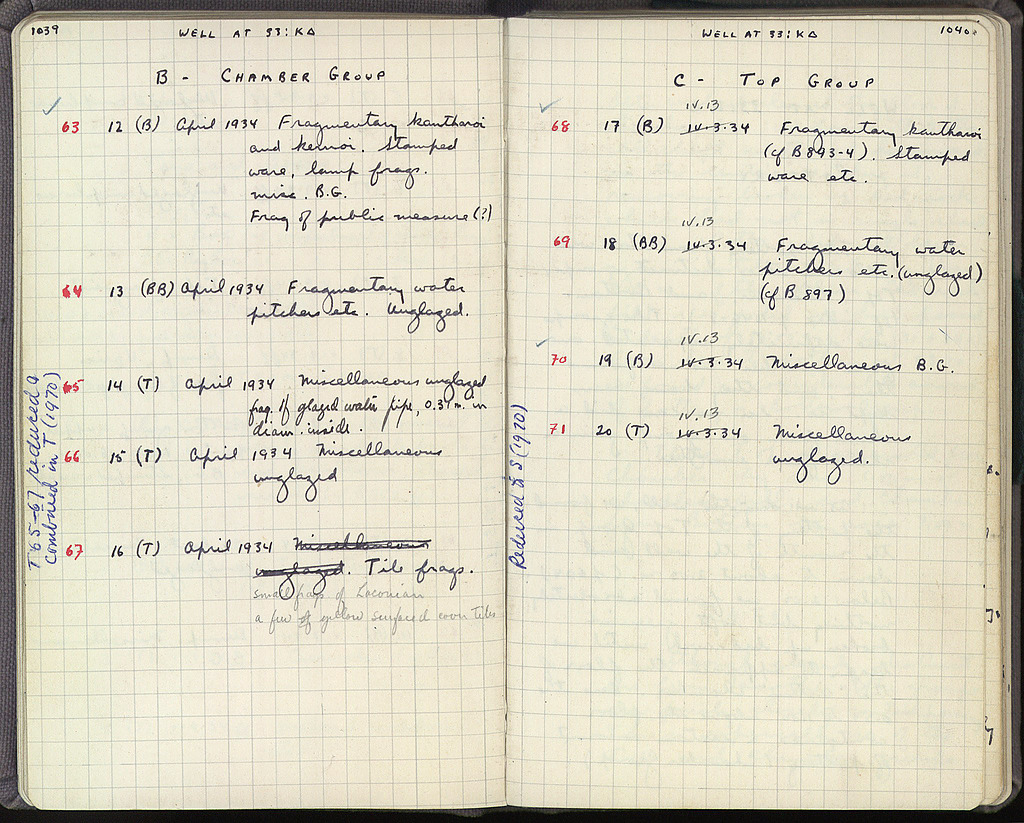 1039 WELL AT 33:ΚΔ
B - CHAMBER GROUP
63 12 (B) April 1934 Fragmentary kantharoi
and kernoi. Stamped
ware, lamp frags.
misc. B.G.
Frag of public measure (?)
64 13 (BB) April 1934 Fragmentary water
pitchers etc. Unglazed.
65 14 (T) April 1934 Miscellaneous unglazed
frag. of glazed water pipe, 0.31 m. in
diam. inside.
66 15 (T) April 1934 Miscellaneous
unglazed
67 16 (T) April 1934 Miscellaneous
unglazed. Tile frags.
small frags of Laconian
a few of yellow surfaced cover tiles
T 65-67 reduced &
combined in T (1970)
WELL AT 33:ΚΔ 1040
C - TOP GROUP
IV.13
68 17 (B) 14.3.34 Fragmentary kantharoi
(cf B 893-4). Stamped
ware etc.
IV.13
69 18 (BB) 14.3.34 Fragmentary water
pitchers etc. (unglazed)
(cf B 897)
IV.13
70 19 (B) 14.3.34 Miscellaneous B.G.
IV.13
71 20 (T) 14.3.34 Miscellaneous
unglazed.
Reduced to S (1970)